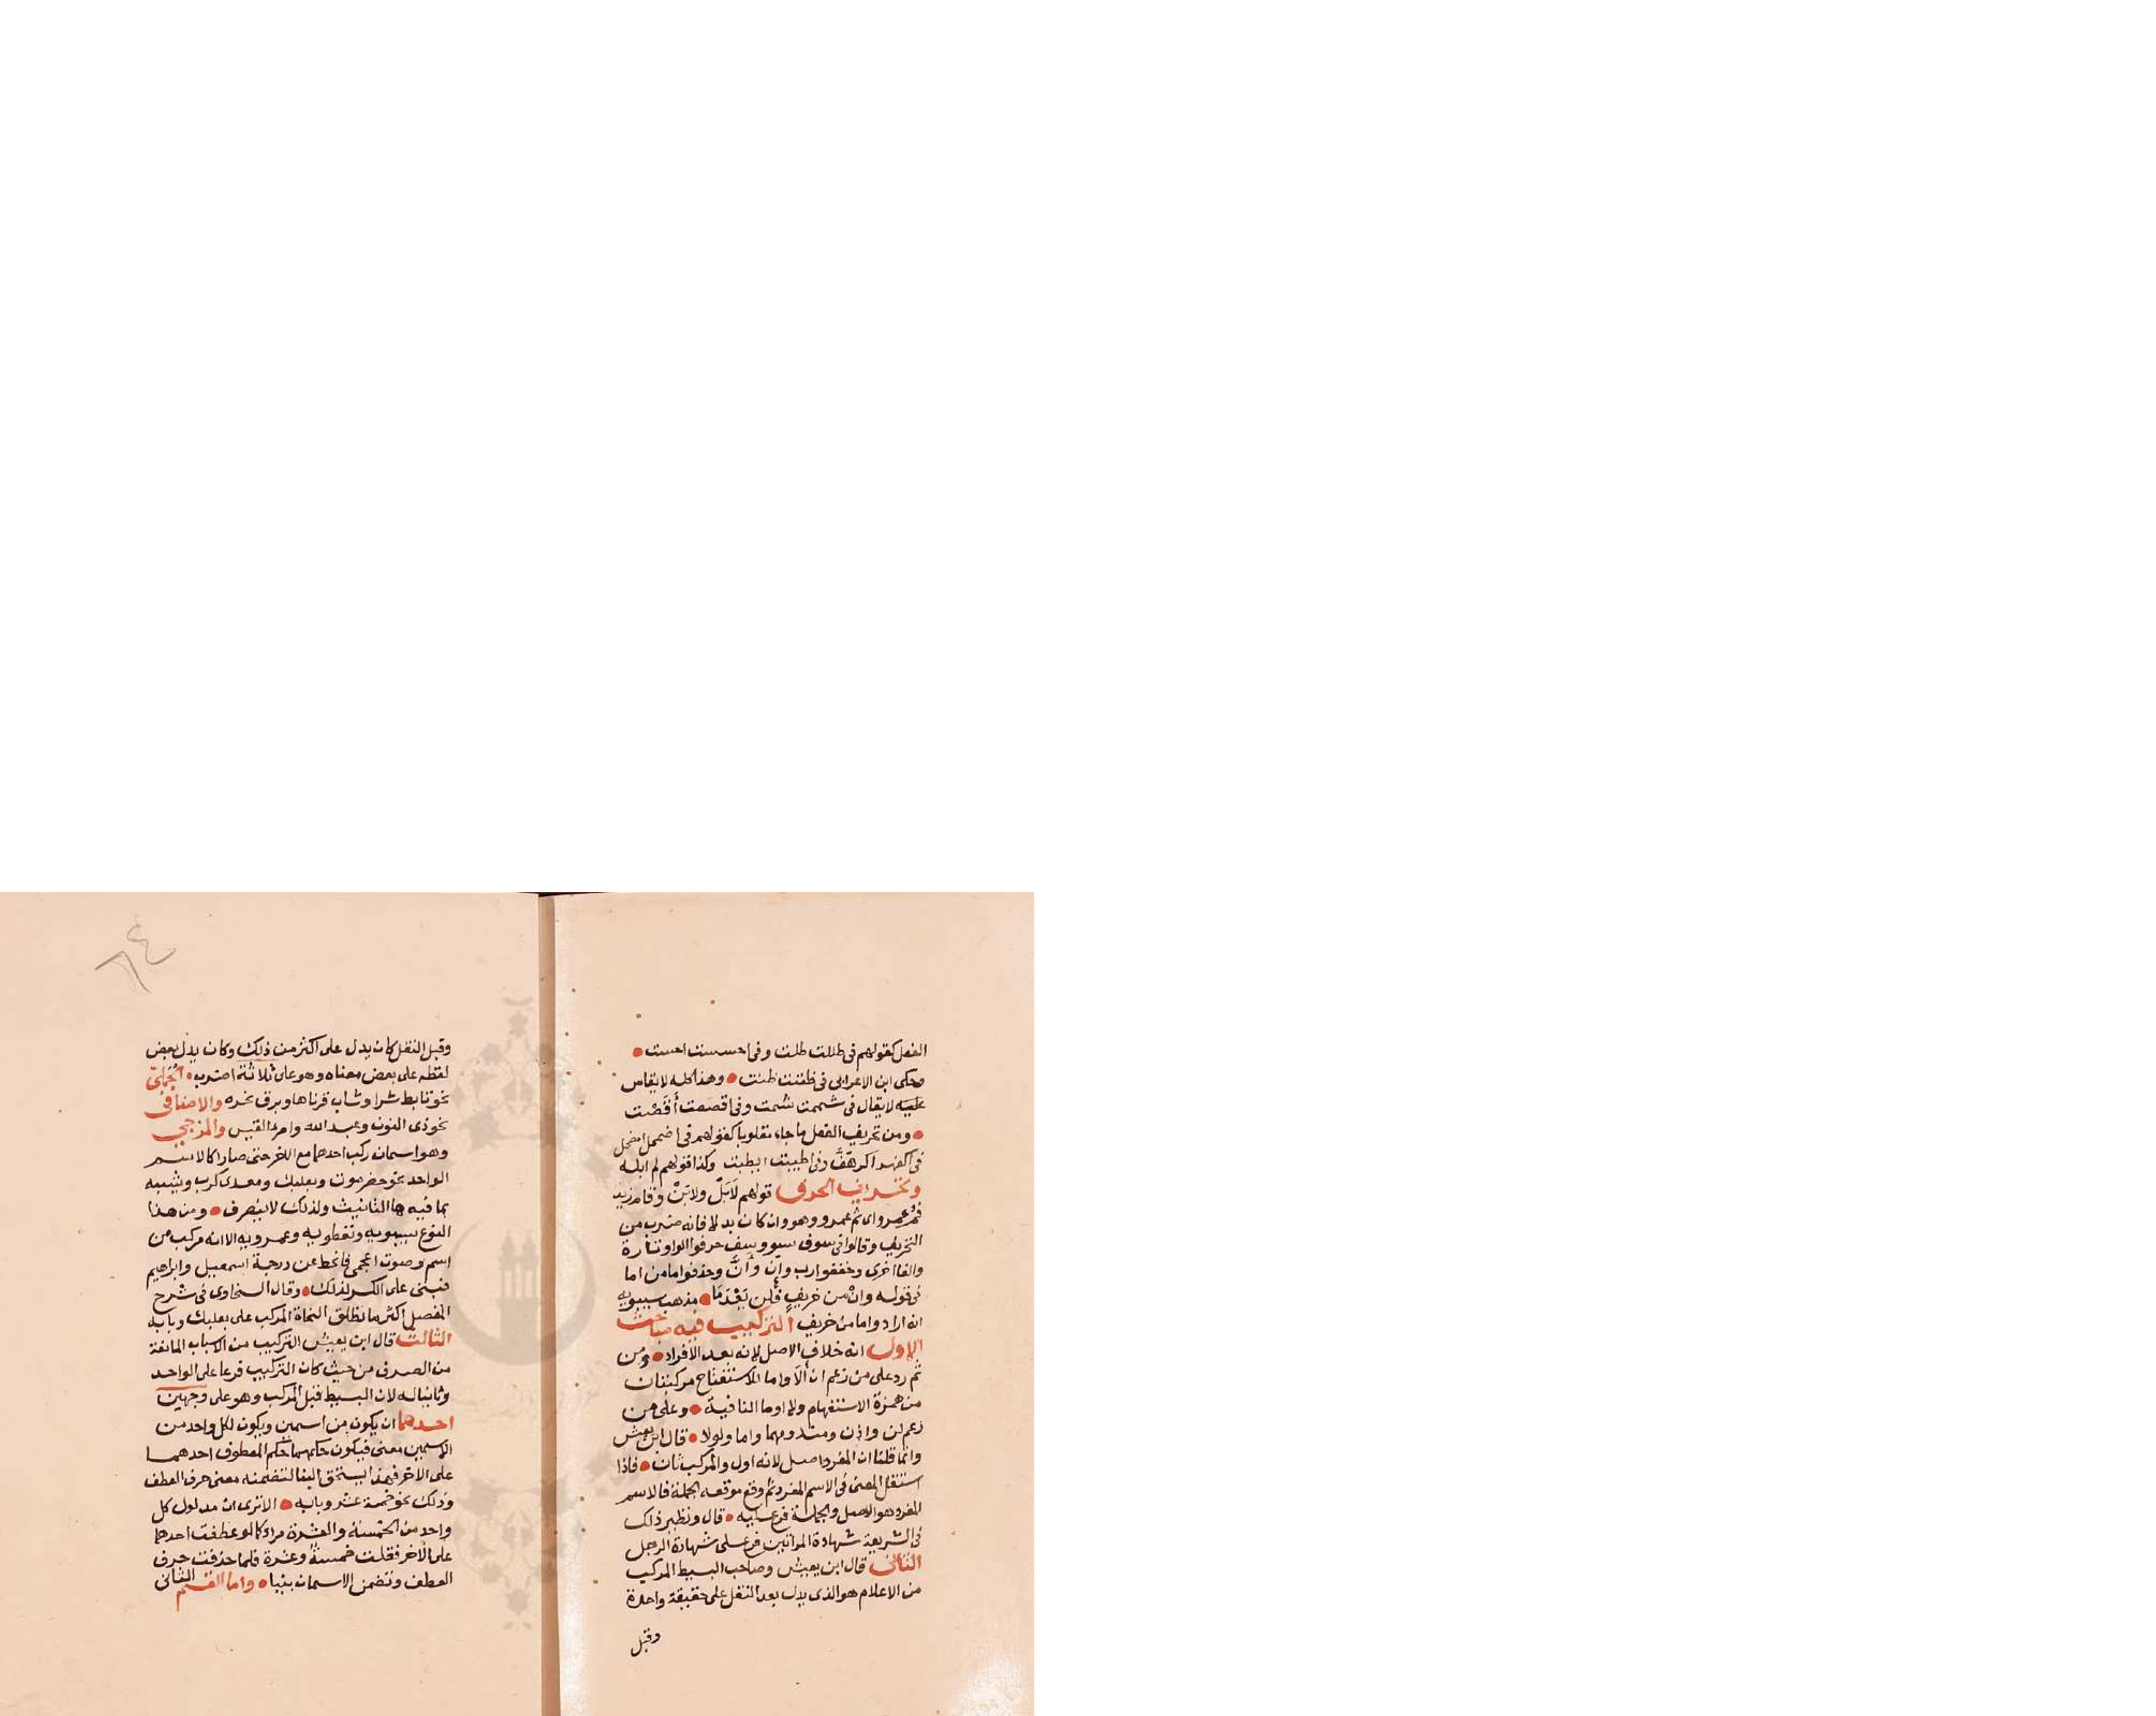 الفعل كقولهم في ظللت ظلت وفي احسست احست
وحكى ابن الاعرابي في ظننت ظنت وهذا كله لا يقاس
عليه لا يقال في شممت شمت وفي اقصصت أقَصْت
ومن تحريف الفعل ما جاء مقلوبا كقولهم في اضمحل امضحل
في اكفهر اكرهفّ وفي اطيبت ايطبت وكذا قولهم لم ابله
وتحريف الحرف قولهم لَابَلْ ولابَنْ وقام زيد
فُمَّ عمرو اي ثم عمرو وهو وان كان بدلا فانه ضرب من
التحريف وقالوا في سوف سو وسف حرفوا الواو تارة
والفا اخرى وخففوا رب وإن وأنّ وحذفوا ما من اما
في قوله وانْ من خريفٍ فلن يَعْدَمَا مذهب سيبويه
انه اراد واما من خريف التركيب فيه مباحث
الاول انه خلاف الاصل لانه بعد الافراد ومن
ثم رد على من زعم ان ألا واما للاستفتاح مركبتان
من همزة الاستفهام ولا او ما النافية وعلى من
زعم لن واذن ومنذ ومهما واما ولولا قال ابن يعيش
وانما قلنا ان المفرد اصل لانه اول والمركب ثان فاذا
استقل المعنى في الاسم المفرد ثم وقع موقعه الجملة فالاسم
المفرد هو الاصل والجملة فرع عليه قال ونظير ذلك
في الشريعة شهادة المراتين فرع على شهادة الرجل
الثاني قال ابن يعيش وصاحب البسيط المركب
من الاعلام هو الذي يدل بعد النقل على حقيقة واحدة
وقبل
٦٤
وقبل النقل كان يدل على اكثر من ذلك وكان يدل بعض
لفظه على بعض معناه وهو على ثلاثة اضرب الجملي
نحو تابط شرا وشاب قرناها وبرق نحره والاضافي
نحو ذي النون وعبد الله وامرء القيس والمزجي
وهو اسمان ركب احدهما مع الاخر حتى صارا كالاسم
الواحد نحو حضرموت وبعلبك ومعدي كرب وشبيه
بما فيه هاء التانيث ولذلك لا ينصرف ومن هذا
النوع سيبويه ونفطويه وعمرويه الا انه مركب من
اسم وصوت اعجمي فانحط عن درجة اسمعيل وابراهيم
فبني على الكسر لذلك وقال السخاوي في شرح
المفصل اكثر ما تطلق النحاة المركب على بعلبك وبابه
الثالث قال ابن يعيش التركيب من الاسباب المانعة
من الصرف من حيث كان التركيب فرعا على الواحد
وثانيا له لان البسيط قبل المركب وهو على وجهين
احدهما ان يكون من اسمين ويكون لكل واحد من
الاسمين معنى فيكون حكمهما حكم المعطوف احدهما
على الاخر فهذا يستحق البنا لتضمنه معنى حرف العطف
وذلك نحو خمسة عشر وبابه الا ترى ان مدلول كل
واحد من الخمسة والعشرة مراد كما لو عطفت احدهما
على الاخر فقلت خمسة وعشرة فلما حذفت حرف
العطف وتضمن الاسمان بنيا واما القسم الثاني